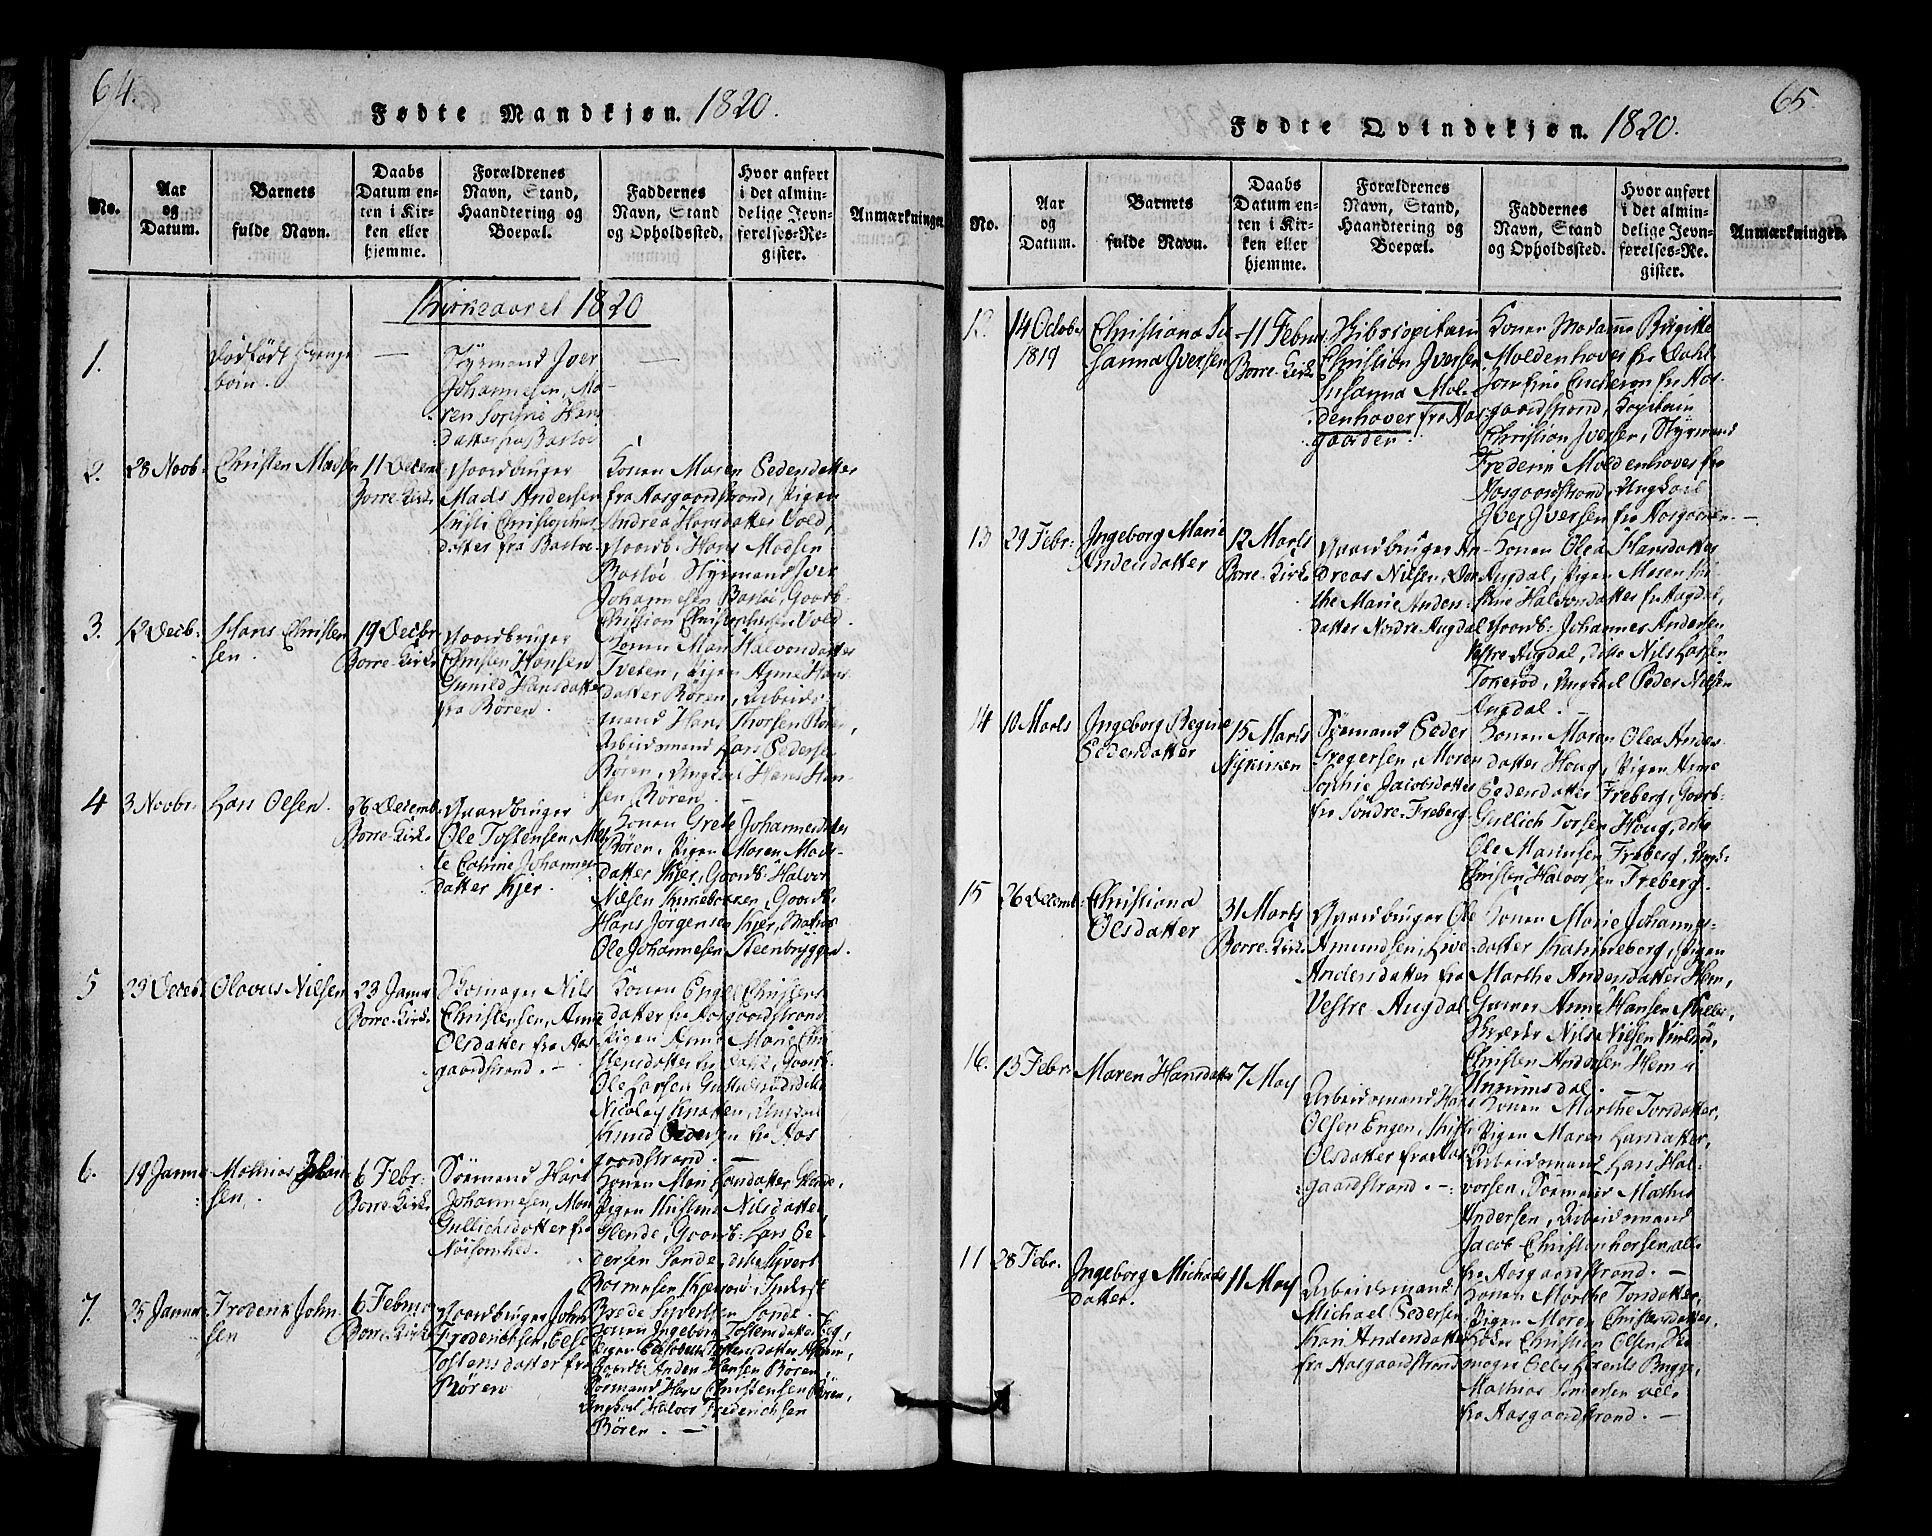 64.
Fødte Mandkjøn. 1820.
No.
Aar
og
Datum.
Barnets
fulde Navn.
Daabs
Datum en-
ten i Kir-
ken eller
hjemme.
Forældrenes
Navn, Stand,
Haandtering og
Boepæl.
Faddernes
Navn, Stand
og Opholdssted.
Hvor anført
i det almin-
delige Jevn-
førelses-Re-
gister.
Anmærkninger.
Kirkeaaret 1820
1.
Dødfödt Drenge
barn.
—
Styrmand Iver
Johannesen, Ma-
ren Sophie Hans
datter fra Bastöe
—
2.
28 Novb:
Christen Madsen
11 Decemb
Borre Kirke
Gaardbruger
Mads Andersen
Kirsti Christophers
datter fra Bastöe
Konen Maren Pedersdatter
fra Aasgaardstrand, Pigen
Andrea Hansdatter Vold,
Gaardb: Hans Madsen
Bastöe Styrmand Iver
Johannesen Bastöe, Gaardb:
Christian Christophersen Vold.
3.
12 Decb:
Hans Christen
sen.
19 Decbr
Borre Kirke
Gaardbruger
Christen Hansen
Gunild Hansdatter
fra Røren.
Konen Mari Halvorsdatter
Tveten, Pigen Anne Hans
datter Røren, Arbeids
mand Hans Thorsen Røren,
Arbeidsmand Lars Pedersen
Røren, Ungkarl Hans Han-
sen Røren.
4
3 Novbr
Lars Olsen.
26 Decemb
Borre Kirke
Gaardbruger
Ole Tostensen, Mar
te Catrine Johannes
datter Kjær.
Konen Grete Johannesdatter
Røren, Pigen Maren Mads-
datter Kjær, Gaardb: Halvor
Nilsen Kirkebakken, Gaardb:
Hans Jörgensen Kjær, Matros
Ole Johannesen Steenbryggen.
5
29 Decbr
Olavus Nilsen
23 Janua
Borre Kirke
Skomager Nils
Christensen, Anne
Olsdatter fra Aas
gaardstrand. —
Konen Engel Christens
datter fra Aasgaardstrand
Pigen Anne Marie Chri
stensdatter fra Gaardb:
Ole Larsen
Nicolay Knatten, Ungkarl
Knud Pedersen fra Aas
gaardstrand. —
6.
19 Janua
Mathias Johan
sen.
6 Febr:
Borre Kirke
Sömand Hans
Johannesen, Mari
Gullichsdatter fra
Nöisomhed.
Konen Mari Larsdatter Glende,
Pigen Kirstine Nilsdatter
Glende, Gaardb: Lars Pe
dersen Sande, ditto Syvert
Rasmusen Kjærød,
Brede Syvertsen Sande.
7.
25 Janua
Frederik John
sen
6 Februa
Borre Kirke
Gaardbruger John
Frederichsen, Else
Tostensdatter fra
Røren
Konen Ingebor Tostensdatter
Pigen Elisabeth Tostensdatter
Gaardb: Anders Hansen Røren
Sörmand Hans Christensen Røren,
Ungkarl Halvor Frederichsen
Røren. —
65.
Fødte Qvindekjøn. 1820.
No.
Aar
og
Datum.
Barnets
fulde Navn.
Daabs
Datum en-
ten i Kir-
ken eller
hjemme.
Forældrenes
Navn, Stand,
Haandtering og
Boepæl.
Faddernes
Navn, Stand
og Opholdssted.
Hvor anført
i det almin-
delige Jevn-
førelses-Re-
gister.
Anmærkninger.
12.
14 Octobr
1819
Christiana Su
sanna Iversen
11 Februa
Borre Kirke
Skibscapitain
Christian Iversen
Susanna Mol-
denhover fra Aas
gaarden.
Konen Madamme Birgitte
Moldenhover fra Dahl
Jomfrue fra Aas-
gaardstrand, Kapitain
Christian Iversen, Styrmand
Frederik Moldenhover fra
Aasgaardstrand, Ungkarl
Iver Iversen fra Aasgaarden —
13
29 Febr:
Ingeborg Marie
Andersdatter
12 Marts
Borre Kirke
Gaardbruger An-
dreas Nilsen, Dor
the Marie Anders
datter Nordre Augdal
Konen Olea Hansdatter
Augdal, Pigen Maren Kir
stine Halvorsdatter fra Augdal,
Gaardb: Johannes Andersen
Vestre Augdal, ditto Nils Larsen
Tokerød, Ungkarl Peder Nilsen
Augdal.
14
10 Marts
Ingeborg Regine
Pedersdatter
15 Marts
Nykirken
Sömand Peder
Gregersen, Maren
Sophie Jacobsdatter
fra Søndre Freberg
Konen Maren Olea Anders
datter Houg, Pigen Anne
Pedersdatter Freberg, Gaardb:
Gullich Torsen Houg, ditto
Ole Mathisen Freberg, Ungk:
Christen Halvorsen Freberg.
15
26 Decemb:
Christiana
Olsdatter
31 Marts
Borre Kirke
Gaardbruger Ole
Amundsen, Live
Andersdatter fra
Vestre Augdal
Konen Marie Johannes-
datter Katrineberg, Pigen
Marthe Andersdatter Hem,
Gaardb: Arne Hansen
Nils Nilsen
Christen Andersen Hem i
Unrumsdal.
16.
13 Febr:
Maren Hansdatter
7 May
Arbeidsmand Hans
Olsen Engen, Kirsti
Olsdatter fra Aas
gaardstrand. —
Konen Marthe Torsdatter,
Pigen Maren Larsdatter,
Arbeidsmand Lars Hal-
vorsen, Sömand Mathis
Andersen, Arbeidsmand
Jacob Christophersen, alle
fra Aasgaardstrand. —
17
28 Febr.
Ingeborg Michaels
datter.
11 May
Arbeidsmand
Michael Pedersen
Kari Andersdatter
fra Aasgaardstrand
Konen Marthe Torsdatter,
Pigen Maren Christensdatter,
Christian Olsen, Sko
mager Peder Bugge,
Mathias Andersen alle
fra Aasgaardstrand. —